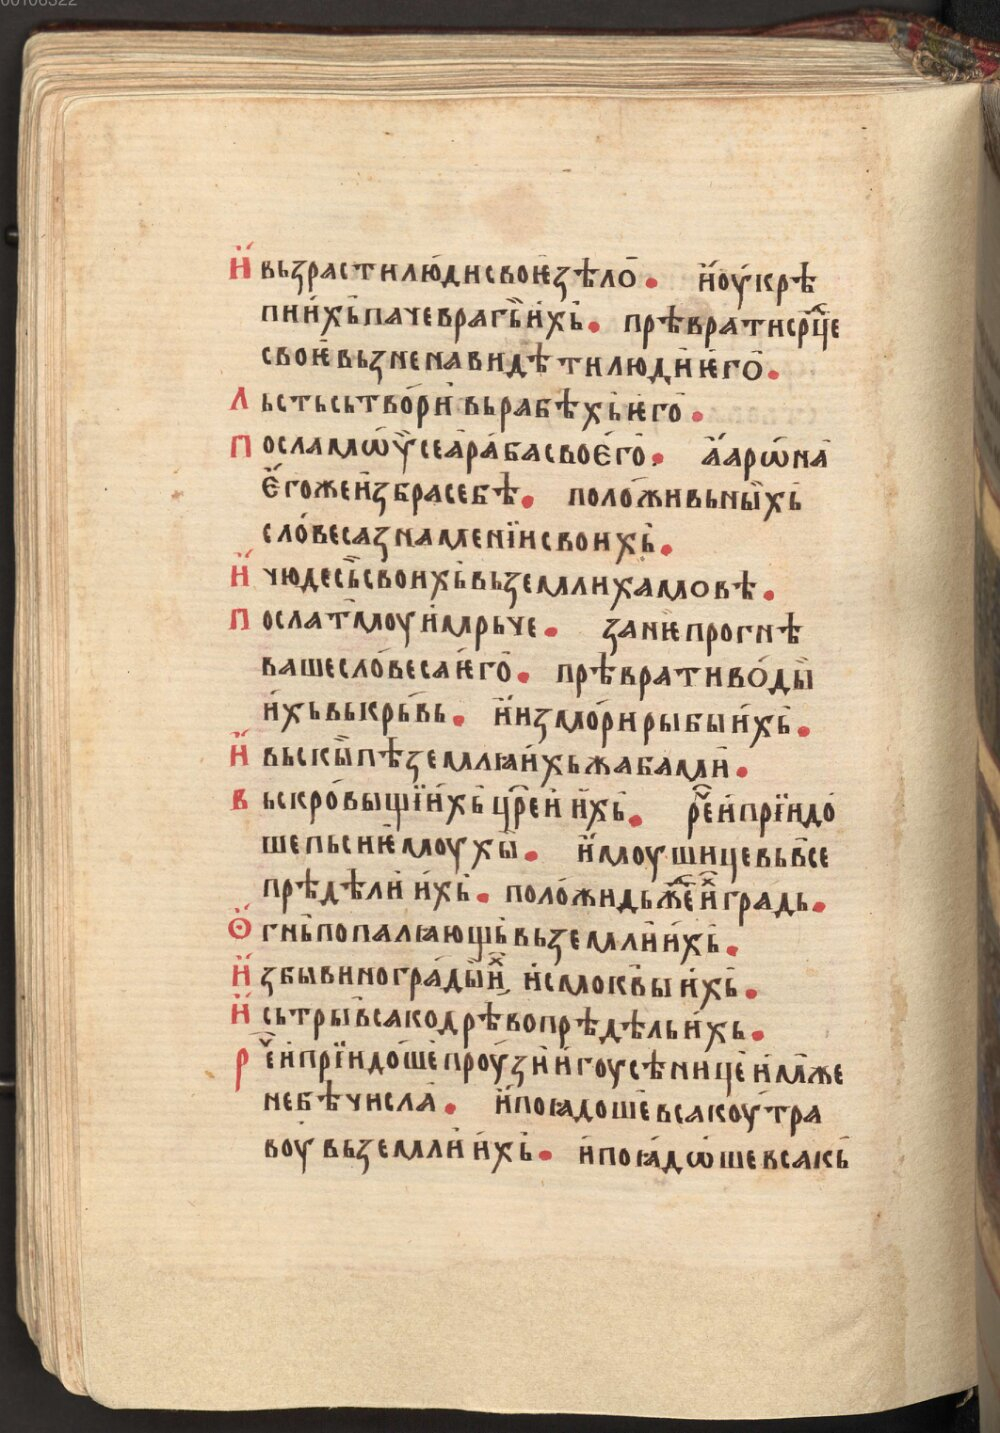 00106322
И҆ вьзрасти лю́ди свое҆ ꙃѣло̀ . и҆ оу҆крѣ
пи и́хь паче врагь и́хь . прѣврати ср҃це
свое҆ вьзненавидѣти люди ѥго̀ .
Льсть сьтво́ри вь рабѣхь ѥго̀ .
Посла мѡѷсеа раба свое́го . а҆арѡ́на
е҆́гоже и҆збра себѣ . поло́жи вь ны́хь
сло́веса знаменїи своихь .
И҆ чюдесь своихь вь земли хамовѣ .
Посла тмоу и҆ мрьче . занѥ прогнѣ
ваше сло́веса ѥго̀ . прѣврати во́ды
и́хь вь крь́вь . и҆ измо́ри рыбы и́хь .
И҆ вьскыпѣ землꙗ и́хь жабами .
Вь скро́выщїи́хь цр҃еи и́хь . рⷱ҇е и҆ прїидо́
ше пьсиѥ моухы . и҆ моушице вь все
прѣдѣли и́хь . поло́жи дьжⷣе иⷯ градь .
Ѻ҆гнь попалꙗющь вь земли и́хь .
И҆зби виногра́ды иⷯ, и҆ смоквы и́хь .
И҆ сьтры всако дрѣво прѣдѣль и́хь .
Рⷱ҇е и҆ прїидо́ше проу́зи и҆ гоусѣнице и҆мже
не бѣ числа . и҆ поꙗдоше всакоу тра
воу вь земли и́хь . и҆ поꙗ́дѡше всакь